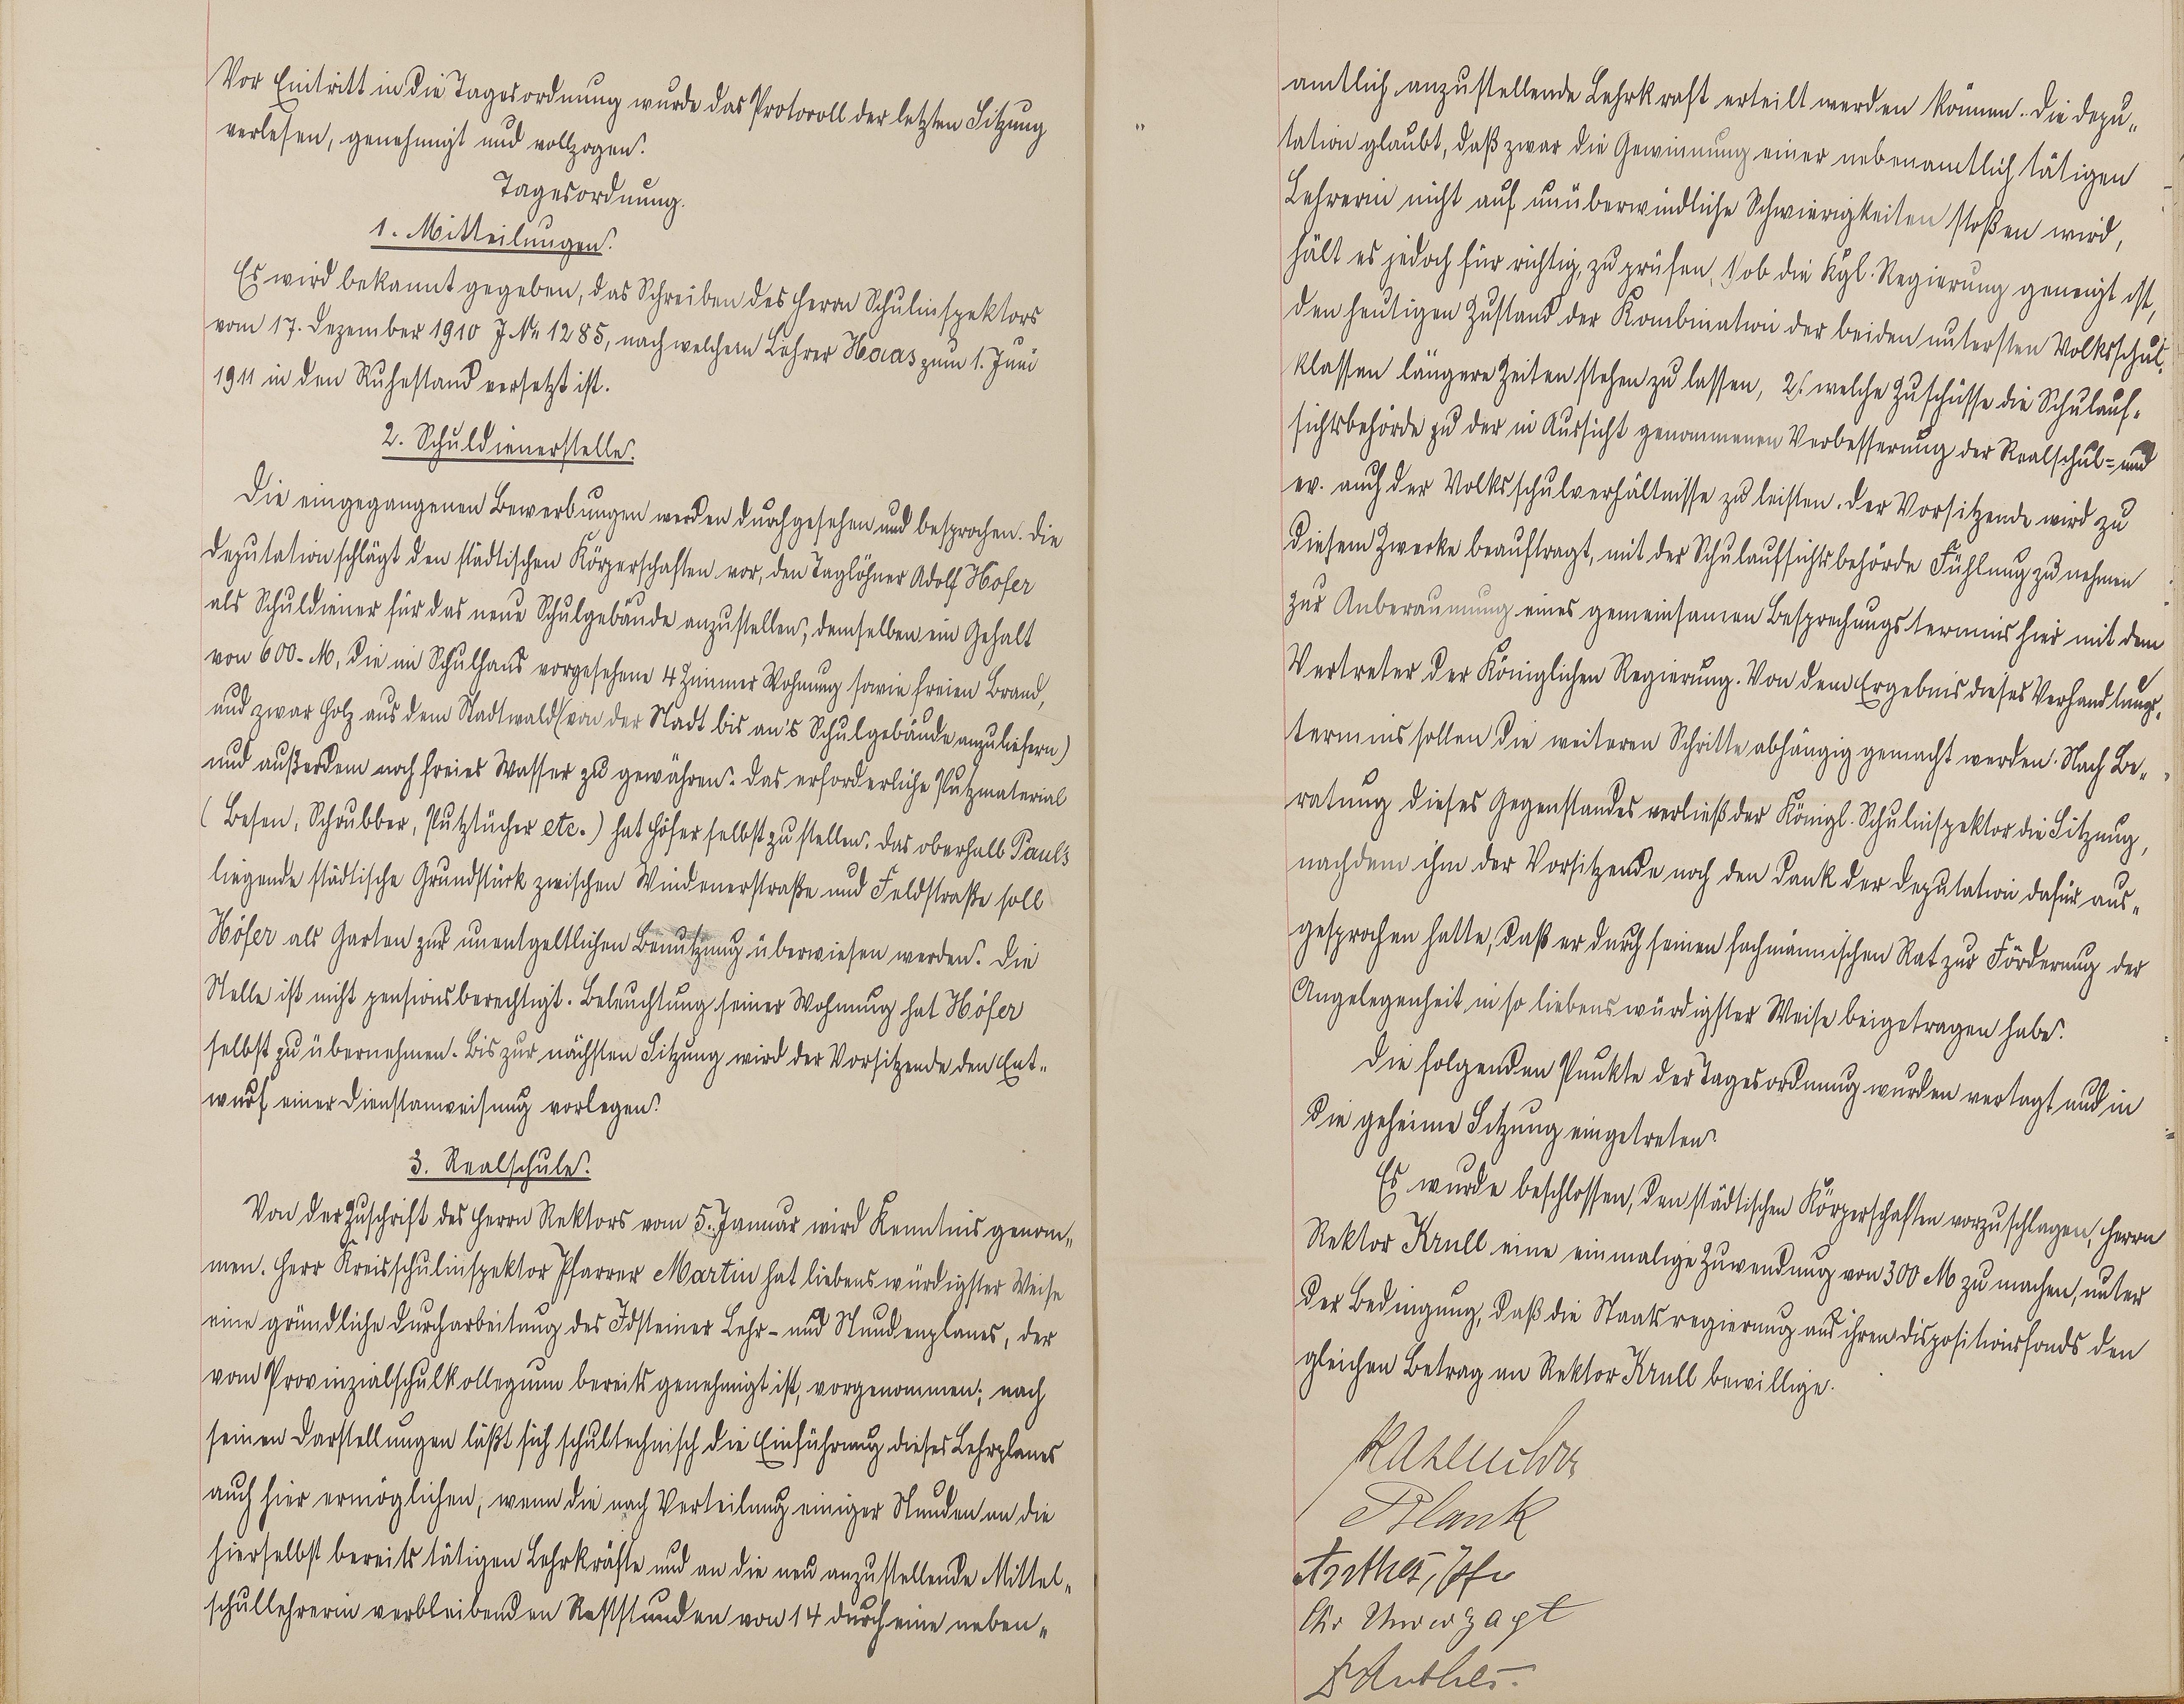 Vor Eintritt in die Tagesordnung wurde das Protocoll der letzten Sitzung
verlesen, genehmigt und vollzogen.
Tagesordnung.
1. Mitteilungen.
Es wird bekannt gegeben, das Schreiben des Herrn Schulinspektors
vom 17. Dezember 1910 J. No 1285, nach welchem Lehrer Haas zum 1. Juni
1911 in den Ruhestand versetzt ist.
2. Schuldienerstelle.
Die eingegangenen Bewerbungen werden durchgesehen und besprochen. Die
Deputation schlägt den städtischen Körperschaften vor, den Taglöhner Adolf Hofer
als Schuldiener für das neue Schulgebäude anzustellen, demselben ein Gehalt
von 600- M, die im Schulhaus vorgesehene 4 Zimmer Wohnung sowie freien Brand,
und zwar Holz aus dem Stadtwald (von der Stadt bis an's Schulgebäude anzuliefern)
und außerdem noch freies Wasser zu gewähren. Das erforderliche Putzmaterial
(Besen, Schrubber, Putztücher etc.) hat Höfer selbst zu stellen. Das oberhalb Paul's
liegende städtische Grundstück zwischen Windenerstraße und Feldstraße soll
Höfer als Garten zur unentgeltlichen Benutzung überwiesen werden. Die
Stelle ist nicht pensionsberechtigt. Beleuchtung seiner Wohnung hat Höfer
selbst zu übernehmen. Bis zur nächsten Sitzung wird der Vorsitzende den Ent-
wurf einer Dienstanweisung vorlegen.
3. Realschule.
Von der Zuschrift des Herrn Rektors vom 5. Januar wird Kenntnis genom-
men. Herr Kreisschulinspektor Pfarrer Martin hat liebenswürdigster Weise
eine gründliche Durcharbeitung des Idsteiner Lehr- und Stundenplanes, der
vom Provinzialschulkollegium bereits genehmigt ist, vorgenommen; nach
seinen Darstellungen läßt sich schultechnisch die Einführung dieses Lehrplanes
auch hier ermöglichen, wenn die nach Verteilung einiger Stunden an die
hierselbst bereits tätigen Lehrkräfte und an die neu anzustellende Mittel-
schullehrerin verbleibenden Reststunden von 14 durch eine neben-
amtlich anzustellende Lehrkraft erteilt werden können. Die Depu-
tation glaubt, daß zwar die Gewinnung einer nebenamtlich tätigen
Lehrerin nicht auf unüberwindliche Schwierigkeiten stoßen wird,
hält es jedoch für richtig, zu prüfen, 1) ob die Kgl. Regierung geneigt ist,
den heutigen Zustand der Kombination der beiden untersten Volksschul-
klassen längere Zeiten stehen zu lassen, 2) welche Zuschüsse die Schulauf-
sichtsbehörde zu der in Aussicht genommenen Verbesserung der Realschul- und
ev. auch der Volksschulverhältnisse zu leisten. Der Vorsitzende wird zu
diesem Zwecke beauftragt, mit der Schulaufsichtsbehörde Fühlung zu nehmen
zur Anberaumung eines gemeinsamen Besprechungstermins hier mit dem
Vertreter der Königlichen Regierung. Von dem Ergebnis dieses Verhandlungs-
termins sollen die weiteren Schritte abhängig gemacht werden. Nach Be-
ratung dieses Gegenstandes verließ der Königl. Schulinspektor die Sitzung,
nachdem ihm der Vorsitzende noch den Dank der Deputation dafür aus-
gesprochen hatte, daß er durch seinen fachmännischen Rat zur Förderung der
Angelegenheit in so liebenswürdigster Weise beigetragen habe.
Die folgenden Punkte der Tagesordnung wurden vertagt und in
die geheime Sitzung eingetreten.
Es wurde beschlossen, den städtischen Körperschaften vorzuschlagen, Herrn
Rektor Krull eine einmalige Zuwendung von 300 M zu machen, unter
der Bedingung, daß die Staatsregierung aus ihren Dispositionsfonds den
gleichen Betrag an Rektor Krull bewillige.
Blank
Anthes, Pfr
Chr Unverzagt
Anthes.